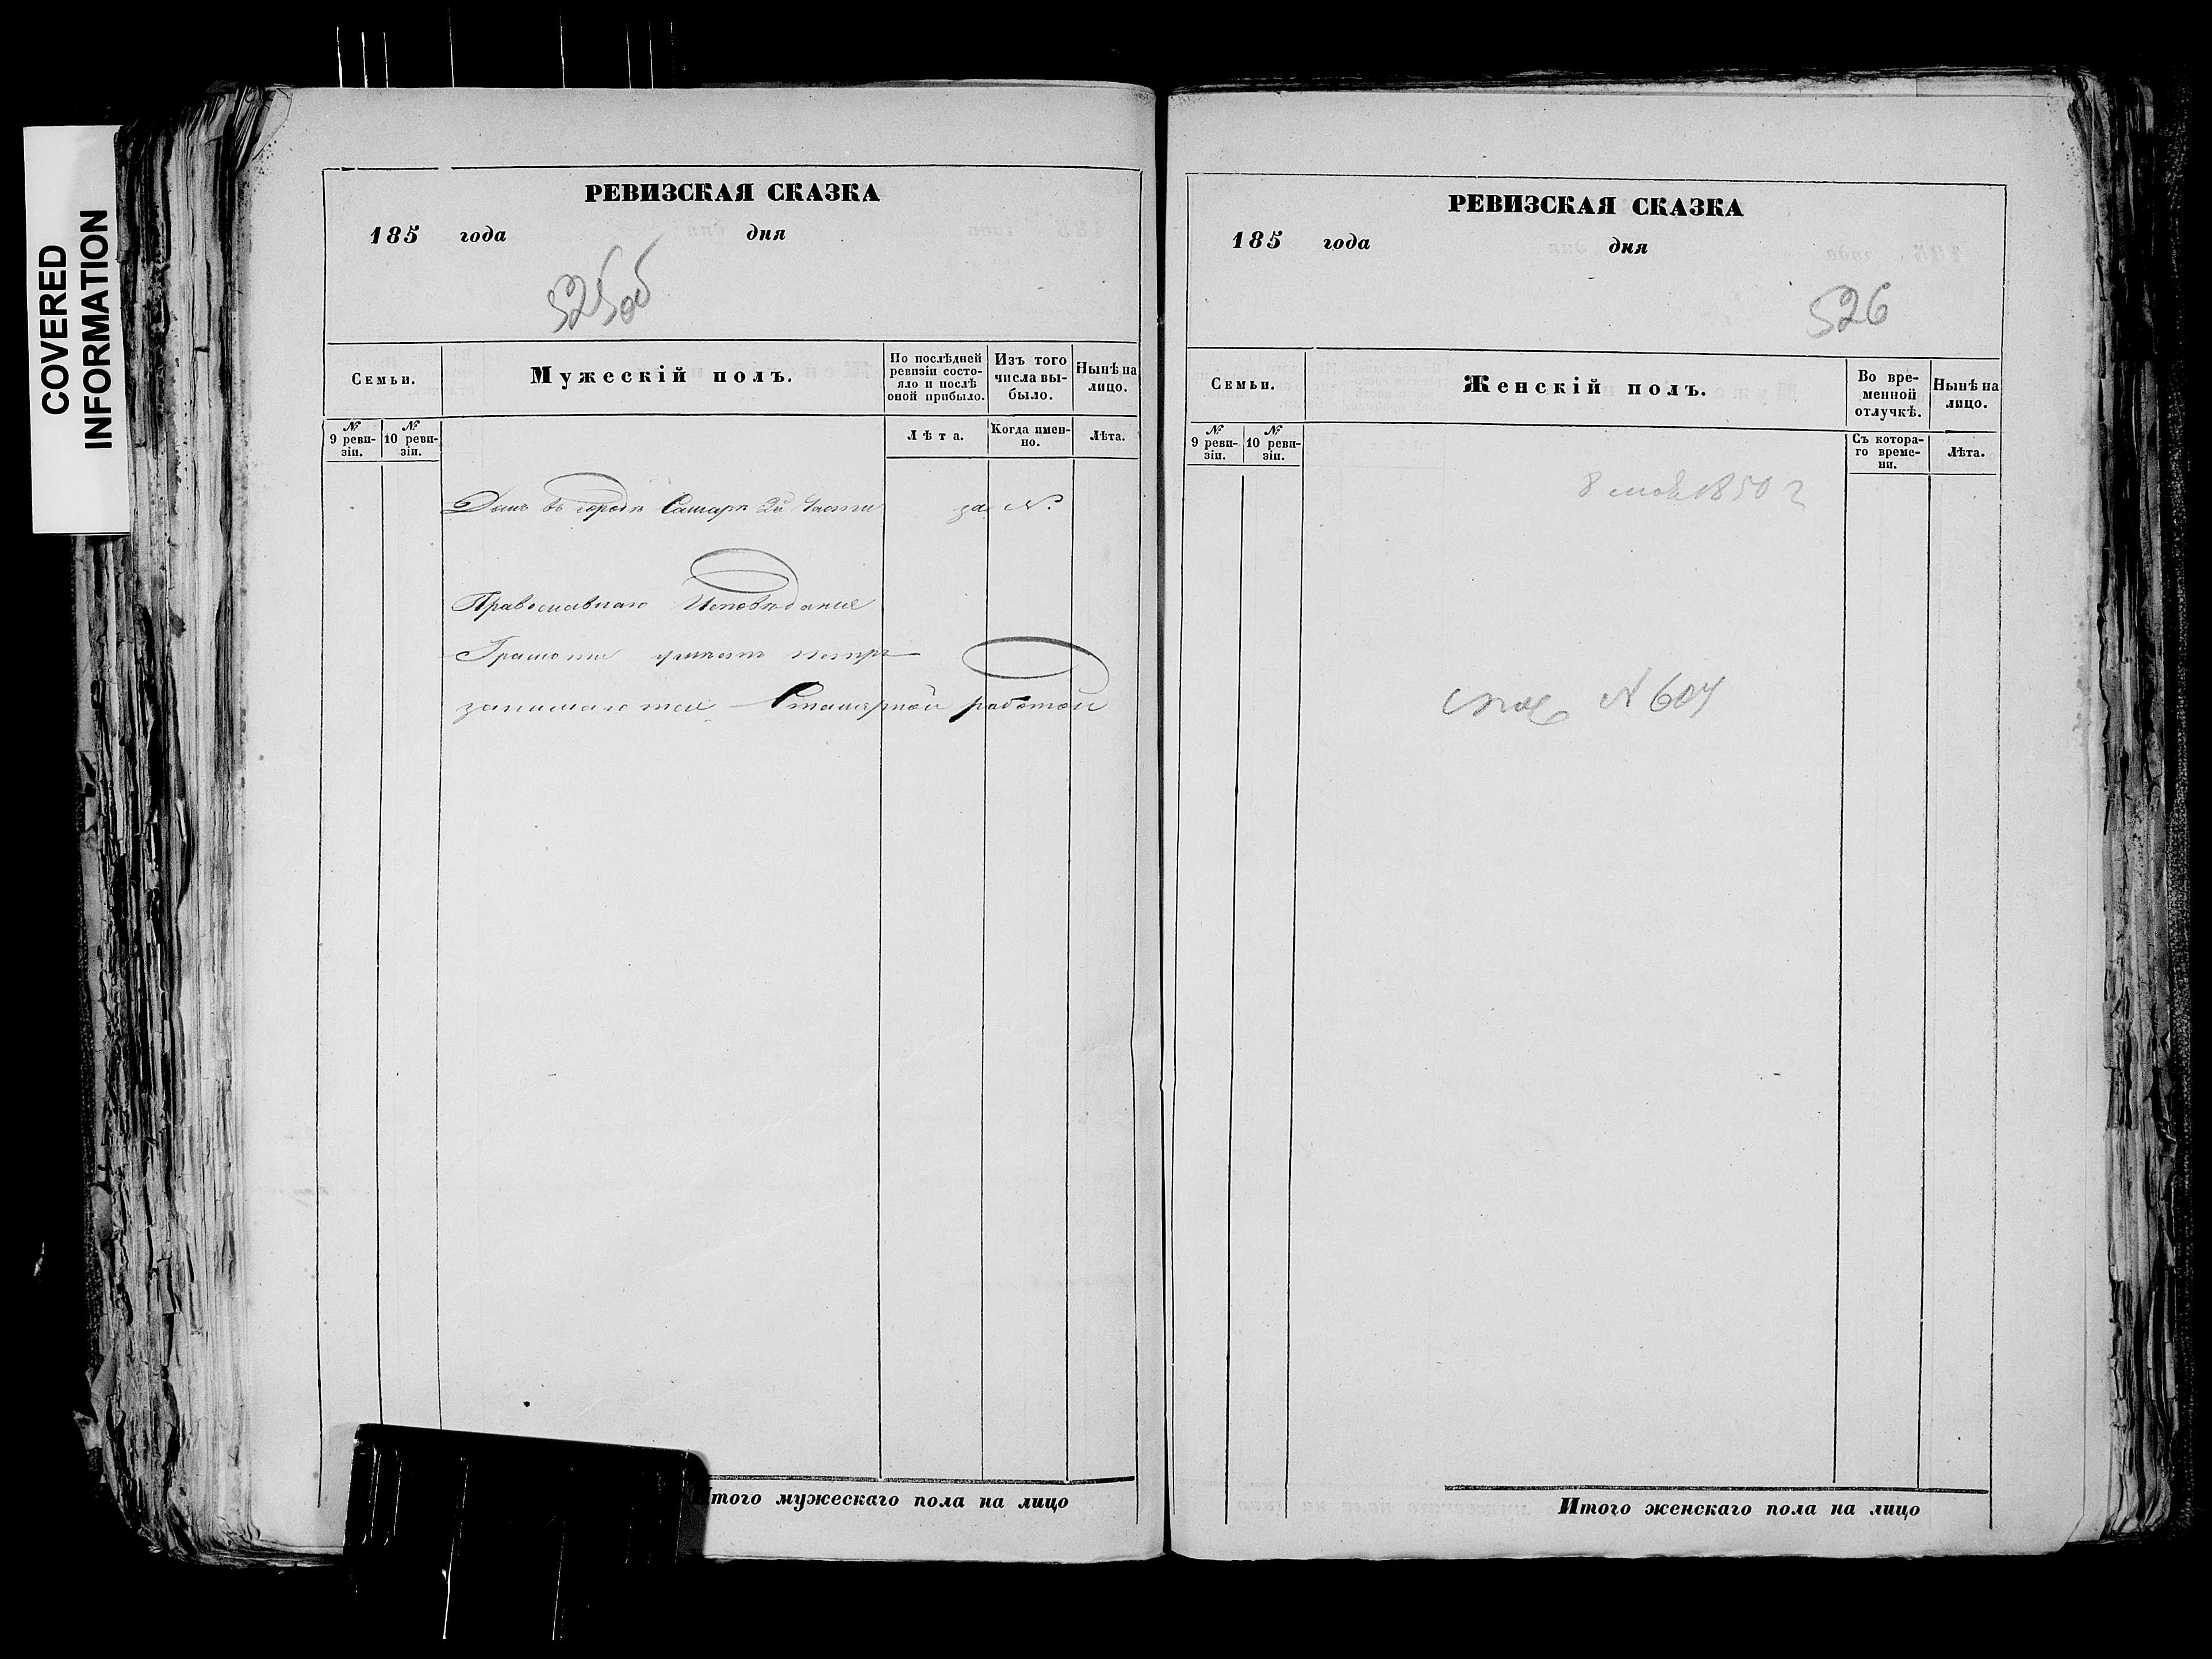 COVERED
INFORMATION
РЕВИЗСКАЯ СКАЗКА
185 года дня
525об
Семьи.
Мужескій полъ.
По послѣдней ревизіи состо-
яло и послѣ
оной прибыло.
Изъ того
числа вы-
было.
Нынѣ на
лицо.
№
9 реви-
зіи.
№
10 реви-
зіи.
Лѣта.
Когда имен-
но.
Лѣта.
Домъ въ городѣ Самарѣ 2й Части за №
Православнаго Исповѣданія
Грамоти
занимается Столярной работой
Итого мужескаго пола на лицо
РЕВИЗСКАЯ СКАЗКА
185 года дня
526
Семьи.
Женскій полъ.
Во вре-
менной
отлучкѣ.
Нынѣ на
лицо.
№
9 реви-
зіи.
№
10 реви-
зіи.
Съ котора-
го време-
ни.
Лѣта.
8 1850 г
№ 604
Итого женскаго пола на лицо